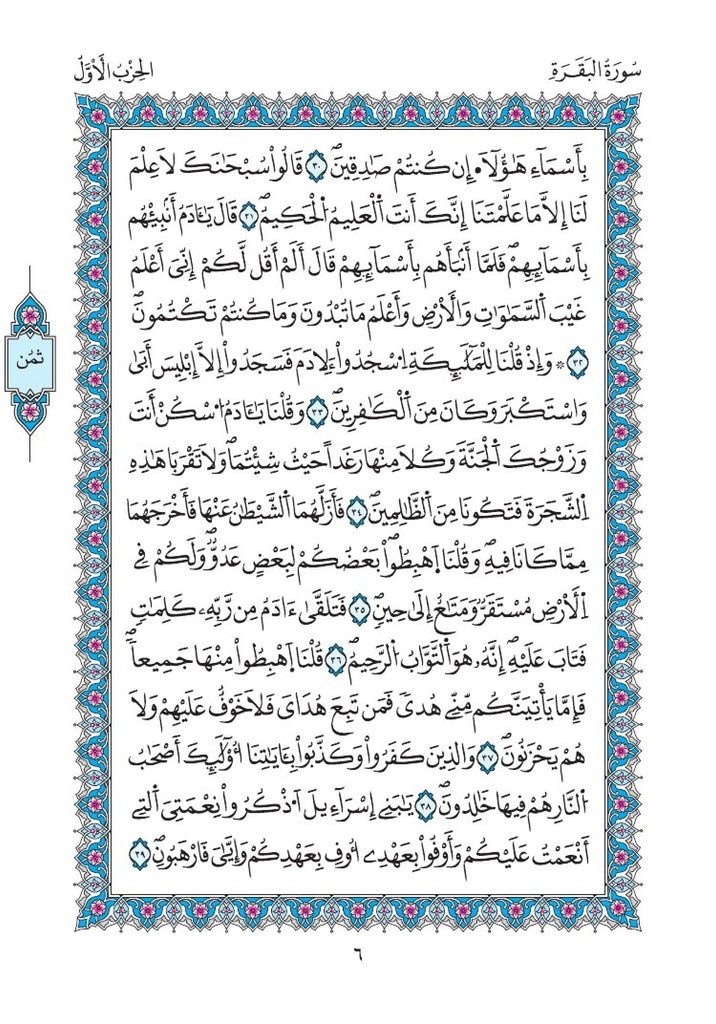 سُورَةُ الْبَقَرَةِ
الحِزْبُ الْأَوَّلُ
بِأَسْمَآءِ هَٰٓؤُلَآءِ ان كُنتُمْ صَٰدِقِينَۖ ٣٠ قَالُواْ سُبْحَٰنَكَ لَا عِلْمَ
لَنَآ إِلَّا مَا عَلَّمْتَنَآ إِنَّكَ أَنتَ اَ۬لْعَلِيمُ اُ۬لْحَكِيمُۖ ٣١ قَالَ يَٰٓـَٔادَمُ أَنۢبِئْهُم
بِأَسْمَآئِهِمْۖ فَلَمَّآ أَنۢبَأَهُم بِأَسْمَآئِهِمْ قَالَ أَلَمْ أَقُل لَّكُمُۥٓ إِنِّيَ أَعْلَمُ
غَيْبَ اَ۬لسَّمَٰوَٰتِ وَالَارْضِ وَأَعْلَمُ مَا تُبْدُونَ وَمَا كُنتُمْ تَكْتُمُونَۖ
٣٢ ۞ وَإِذْ قُلْنَا لِلْمَلَٰٓئِكَةِ اِ۟سْجُدُواْ لِأٓدَمَ فَسَجَدُوٓاْ إِلَّآ إِبْلِيسَ أَب۪ىٰ
وَاسْتَكْبَرَ وَكَانَ مِنَ اَ۬لْكَٰفِرِينَۖ ٣٣ وَقُلْنَا يَٰٓـَٔادَمُ اُ۟سْكُنَ اَنتَ
وَزَوْجُكَ اَ۬لْجَنَّةَ وَكُلَا مِنْهَا رَغَداً حَيْثُ شِئْتُمَاۖ وَلَا تَقْرَبَا هَٰذِهِ
اِ۬لشَّجَرَةَ فَتَكُونَا مِنَ اَ۬لظَّٰلِمِينَۖ ٣٤ فَأَزَلَّهُمَا اَ۬لشَّيْطَٰنُ عَنْهَا فَأَخْرَجَهُمَا
مِمَّا كَانَا فِيهِۖ وَقُلْنَا اَ۪هْبِطُواْ بَعْضُكُمْ لِبَعْضٍ عَدُوّٞۖ وَلَكُمْ فِي
اِ۬لَارْضِ مُسْتَقَرّٞ وَمَتَٰعٌ إِلَىٰ حِينٖۖ ٣٥ فَتَلَقَّىٰٓ ءَادَمُ مِن رَّبِّهِۦ كَلِمَٰتٖ
فَتَابَ عَلَيْهِۖ إِنَّهُۥ هُوَ اَ۬لتَّوَّابُ اُ۬لرَّحِيمُۖ ٣٦ قُلْنَا اَ۪هْبِطُواْ مِنْهَا جَمِيعاًۖ
فَإِمَّا يَأْتِيَنَّكُم مِّنِّي هُدىٗ فَمَن تَبِعَ هُدَايَ فَلَا خَوْفٌ عَلَيْهِمْ وَلَا
هُمْ يَحْزَنُونَۖ ٣٧ وَالذِينَ كَفَرُواْ وَكَذَّبُواْ بِـَٔايَٰتِنَآ أُوْلَٰٓئِكَ أَصْحَٰبُ
اُ۬لنَّارِ هُمْ فِيهَا خَٰلِدُونَۖ ٣٨ يَٰبَنِيٓ إِسْرَآءِيلَ اَ۟ذْكُرُواْ نِعْمَتِيَ اَ۬لتِي
أَنْعَمْتُ عَلَيْكُمْ وَأَوْفُواْ بِعَهْدِيٓ أُوفِ بِعَهْدِكُمْ وَإِيَّٰيَ فَارْهَبُونِۖ ٣٩
ثُمُن
٦